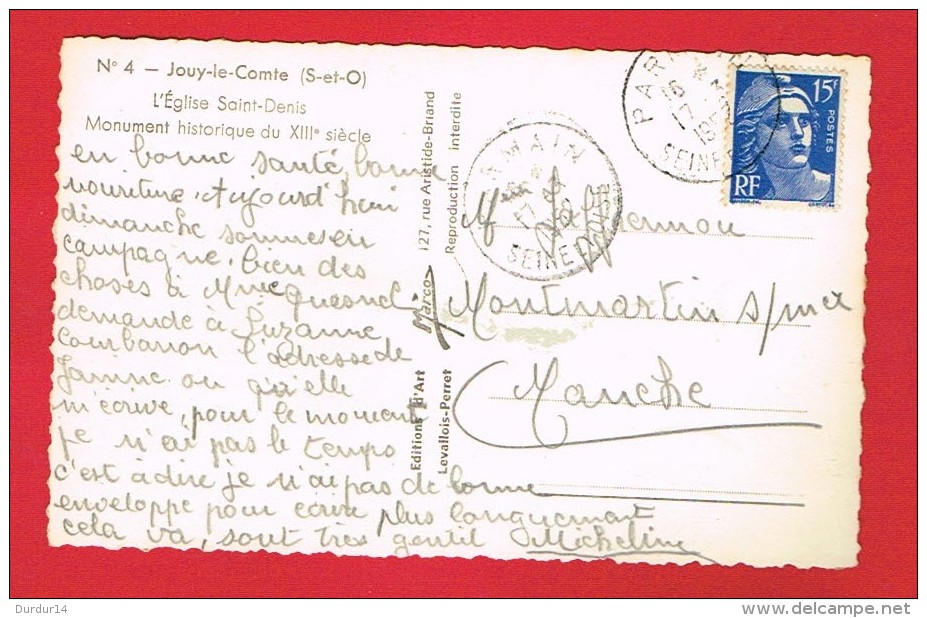 N° 4 — Jouy-le-Comte (S-et-O)
L'Église Saint-Denis
Monument historique du XIIIe siècle
en bonne santé, bonne
nouriture, Aujourd'hui
dimanche sommes en
campagne, bien des
choses à Mme Quesnel
demande à Suzanne
Courbaron l'adresse de
Janine ou qu'elle
m'écrive, pour le moment
je n'ai pas le temps
c'est à dire je n'ai pas de bonne
enveloppe pour écrire plus longuement
cela va, sont très gentil Micheline
Editions d'Art Marco
Levallois-Perret
127, rue Aristide-Briand
Reproduction interdite
PARMAIN
SEINE
PARMAIN
16
17
SEINE
15F
POSTES
RF
Montmartin s/mer
Manche
Durdur14
http://www.delcampe.net